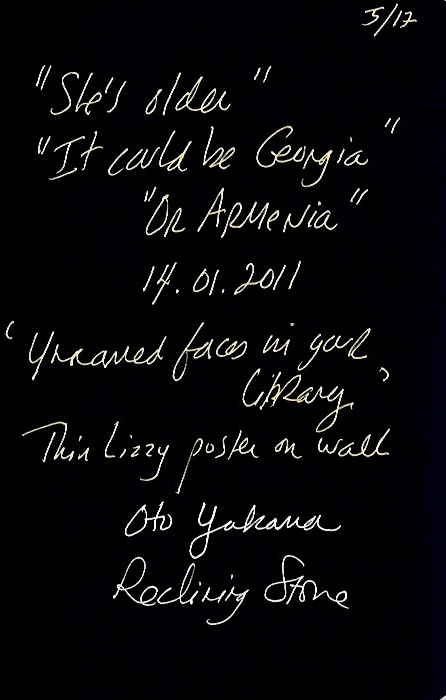 5/17
"She's older"
"It could be Georgia"
"Or Armenia"
14.01.2011
'Unnamed faces in your
library'
Thin Lizzy poster on wall
Oto Yakana
Reclining Stone